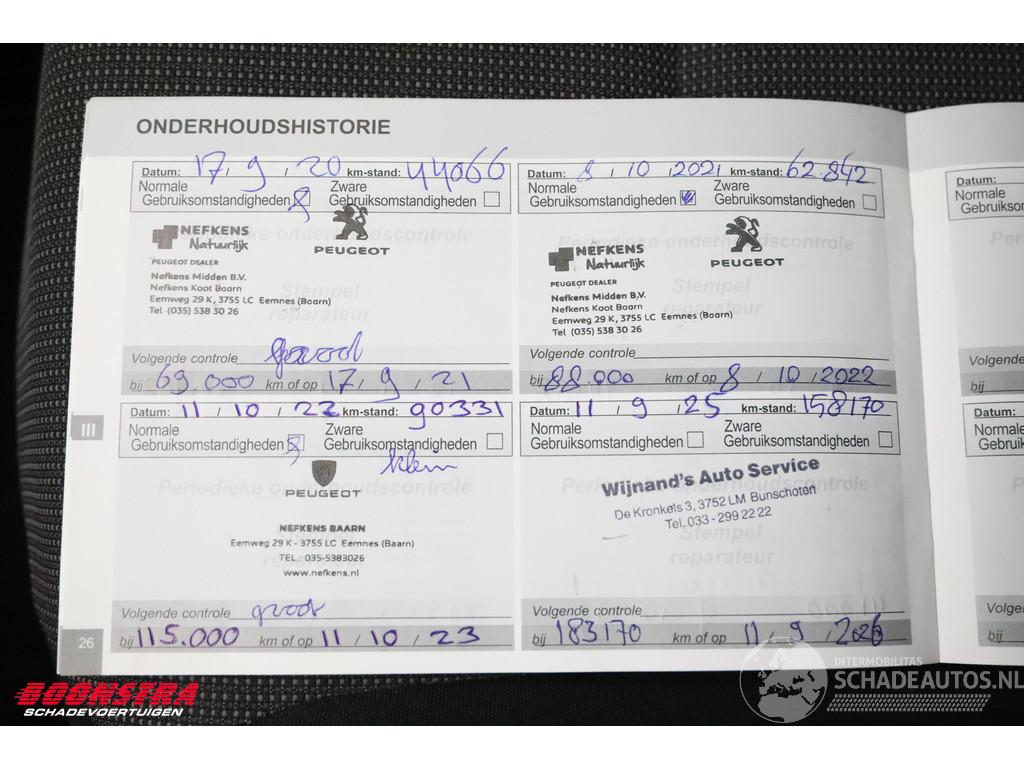 ONDERHOUDSHISTORIE
Datum: 17 / 9 / 20 km-stand: 44066
Normale Gebruiksomstandigheden
Zware Gebruiksomstandigheden
NEFKENS
Natuurlijk
PEUGEOT
PEUGEOT DEALER
Nefkens Midden B.V.
Nefkens Koot Baarn
Eemweg 29 K, 3755 LC Eemnes (Baarn)
Tel (035) 538 30 26
Periodieke onderhoudscontrole
Stempel
reparateur
Volgende controle groot
bij 69.000 km of op 17 / 9 / 21
Datum: 8 / 10 / 2021 km-stand: 62.842
Normale Gebruiksomstandigheden
Zware Gebruiksomstandigheden
NEFKENS
Natuurlijk
PEUGEOT
PEUGEOT DEALER
Nefkens Midden B.V.
Nefkens Koot Baarn
Eemweg 29 K, 3755 LC Eemnes (Baarn)
Tel (035) 538 30 26
Periodieke onderhoudscontrole
Stempel
reparateur
Volgende controle
bij 88.000 km of op 8 / 10 / 2022
III
Datum: 11 / 10 / 22 km-stand: 90331
Normale Gebruiksomstandigheden
Zware Gebruiksomstandigheden
klein
PEUGEOT
Periodieke onderhoudscontrole
NEFKENS BAARN
Eemweg 29 K - 3755 LC Eemnes (Baarn)
TEL.: 035-5383026
www.nefkens.nl
Volgende controle groot
bij 115.000 km of op 11 / 10 / 23
Datum: 11 / 9 / 25 km-stand: 158170
Normale Gebruiksomstandigheden
Zware Gebruiksomstandigheden
Wijnand's Auto Service
De Kronkels 3, 3752 LM Bunschoten
Tel. 033 - 299 22 22
Stempel
reparateur
Volgende controle
bij 183170 km of op 11 / 9 / 2026
26
Datum:
Normale
Gebruiksom
Volgende
bij
Datum:
Normale
Gebruikso
Volge
bij
BOONSTRA
SCHADEVOERTUIGEN
INTERMOBILITAS
SCHADEAUTOS.NL